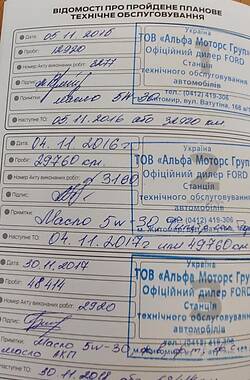 ВІДОМОСТІ ПРО ПРОЙДЕНЕ ПЛАНОВЕ
ТЕХНІЧНЕ ОБСЛУГОВУВАННЯ
Дата: 05.11.2015
Пробіг: 12920
Номер Акту виконаних робіт: 3277
Підпис:
Примітки: масло 5W-30
Наступне ТО: 05.11.2016 або 32920 км
Україна
ТОВ «Альфа Моторс Груп»
Офіційний дилер FORD
Станція
технічного обслуговування
автомобілів
(0412) 419-306
м. Житомир, вул. Ватутіна,
Дата: 04.11.2016г
Пробіг: 29760 км.
Номер Акту виконаних робіт: 3100
Підпис:
Примітки: Масло 5w-30
Наступне ТО: 04.11.2017г или 49760 км
Україна
ТОВ «Альфа Моторс Груп»
Офіційний дилер FORD
Станція
технічного обслуговування
автомобілів
(0412) 419-306
Дата: 30.11.2017
Пробіг: 48414
Номер Акту виконаних робіт: 2920
Підпис:
Примітки: Масло 5w-30
масло АКП
Наступне ТО: 30.11.2018
Україна
ТОВ «Альфа Моторс Груп»
Офіційний дилер FORD
Станція
технічного обслуговування
автомобілів